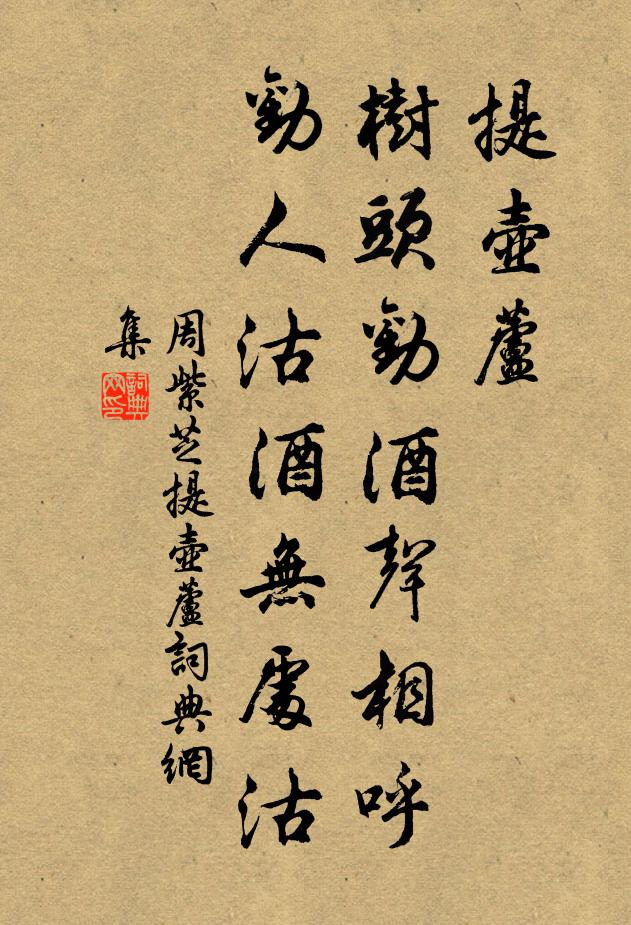 提壺蘆
樹頭勸酒聲相呼
勸人沽酒無處沽
周紫芝提壺蘆詞典網
集
詞典網印